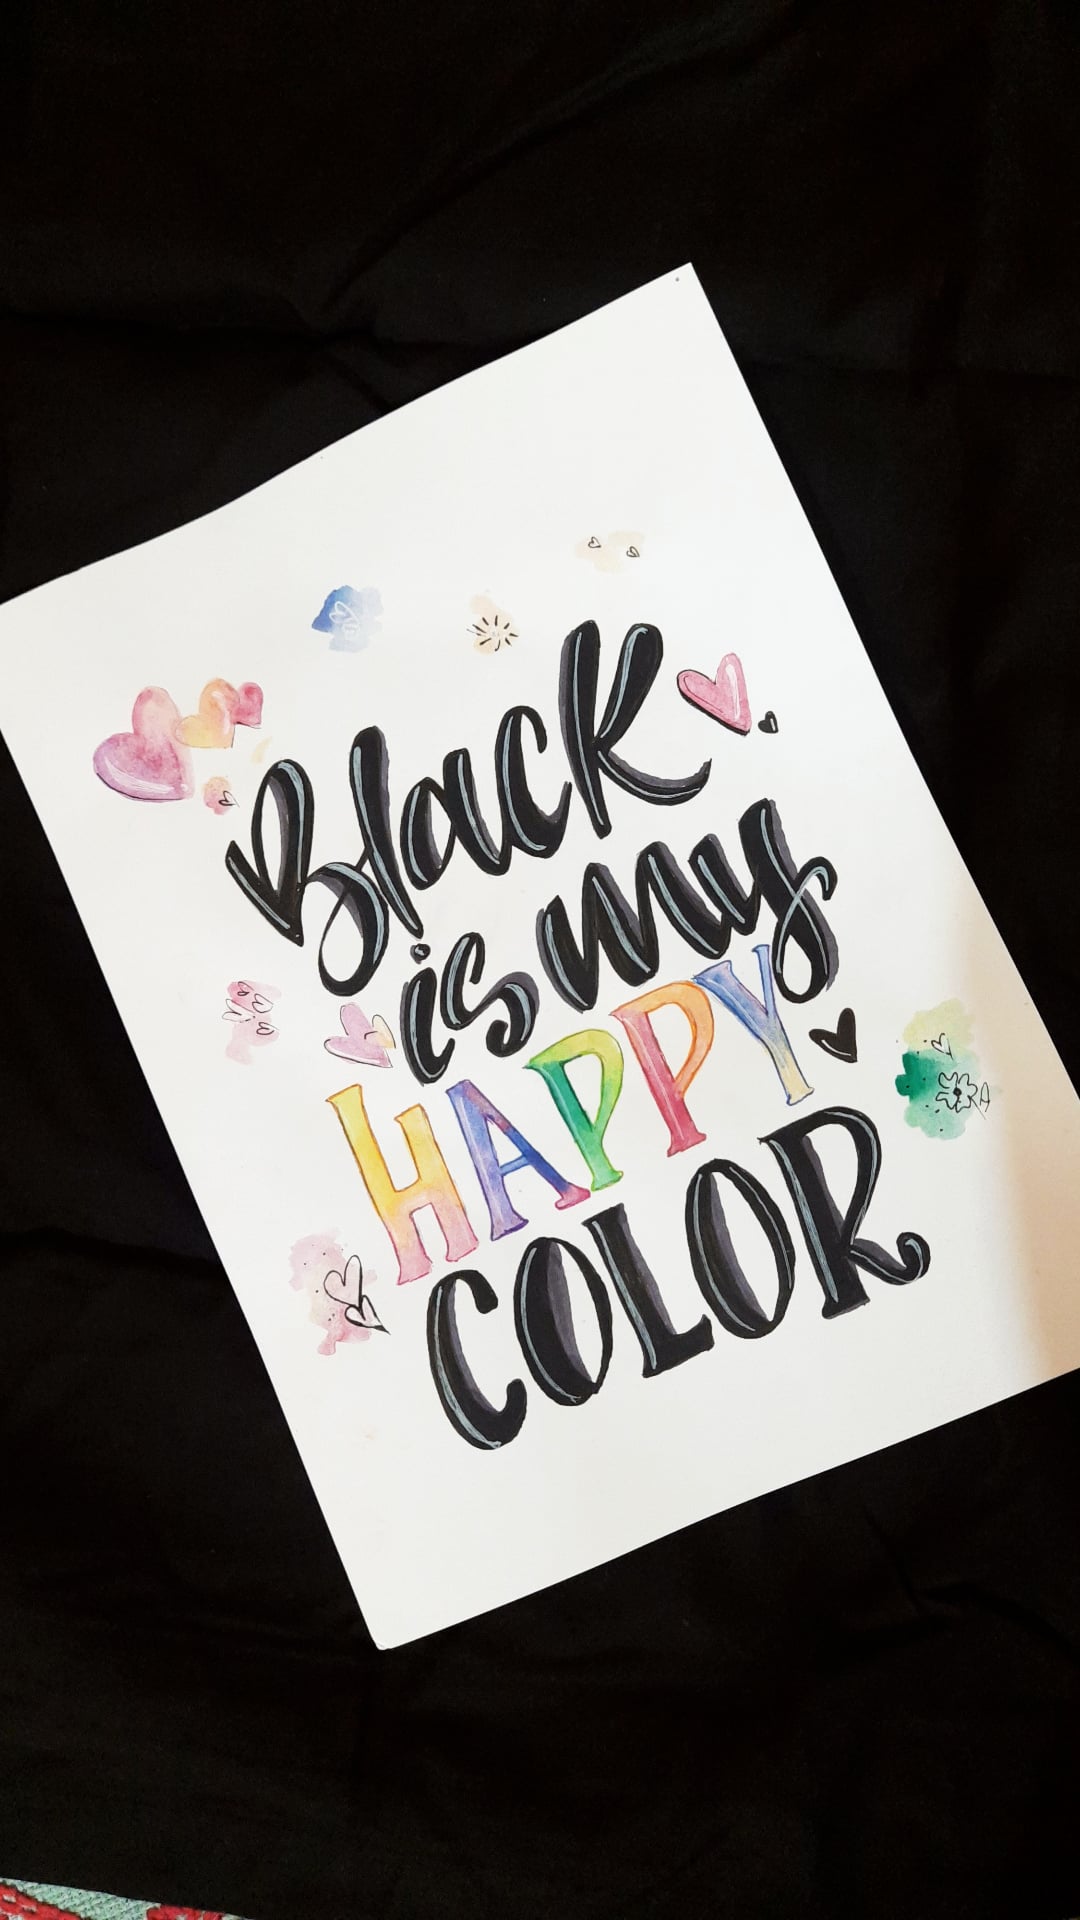 Black
is my
HAPPY
COLOR